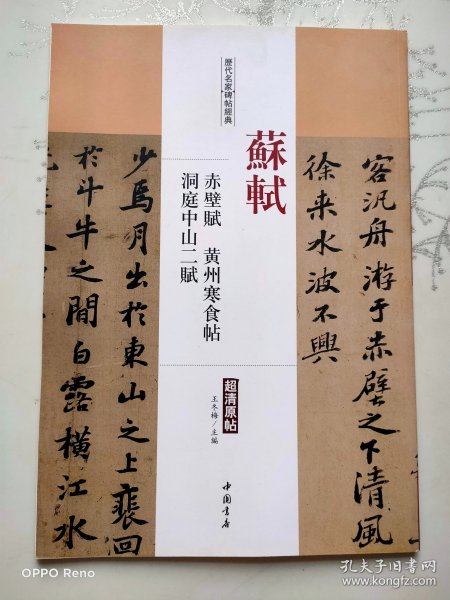 客汎舟游于赤壁之下清風
徐来水波不興
歷代名家碑帖經典
蘇軾
赤壁賦 黃州寒食帖
洞庭中山二賦
超清原帖
王冬梅/主編
中国书店
少焉月出於東山之上裴回
於斗牛之間白露横江水
OPPO Reno
孔夫子旧书网
www.kongfz.com